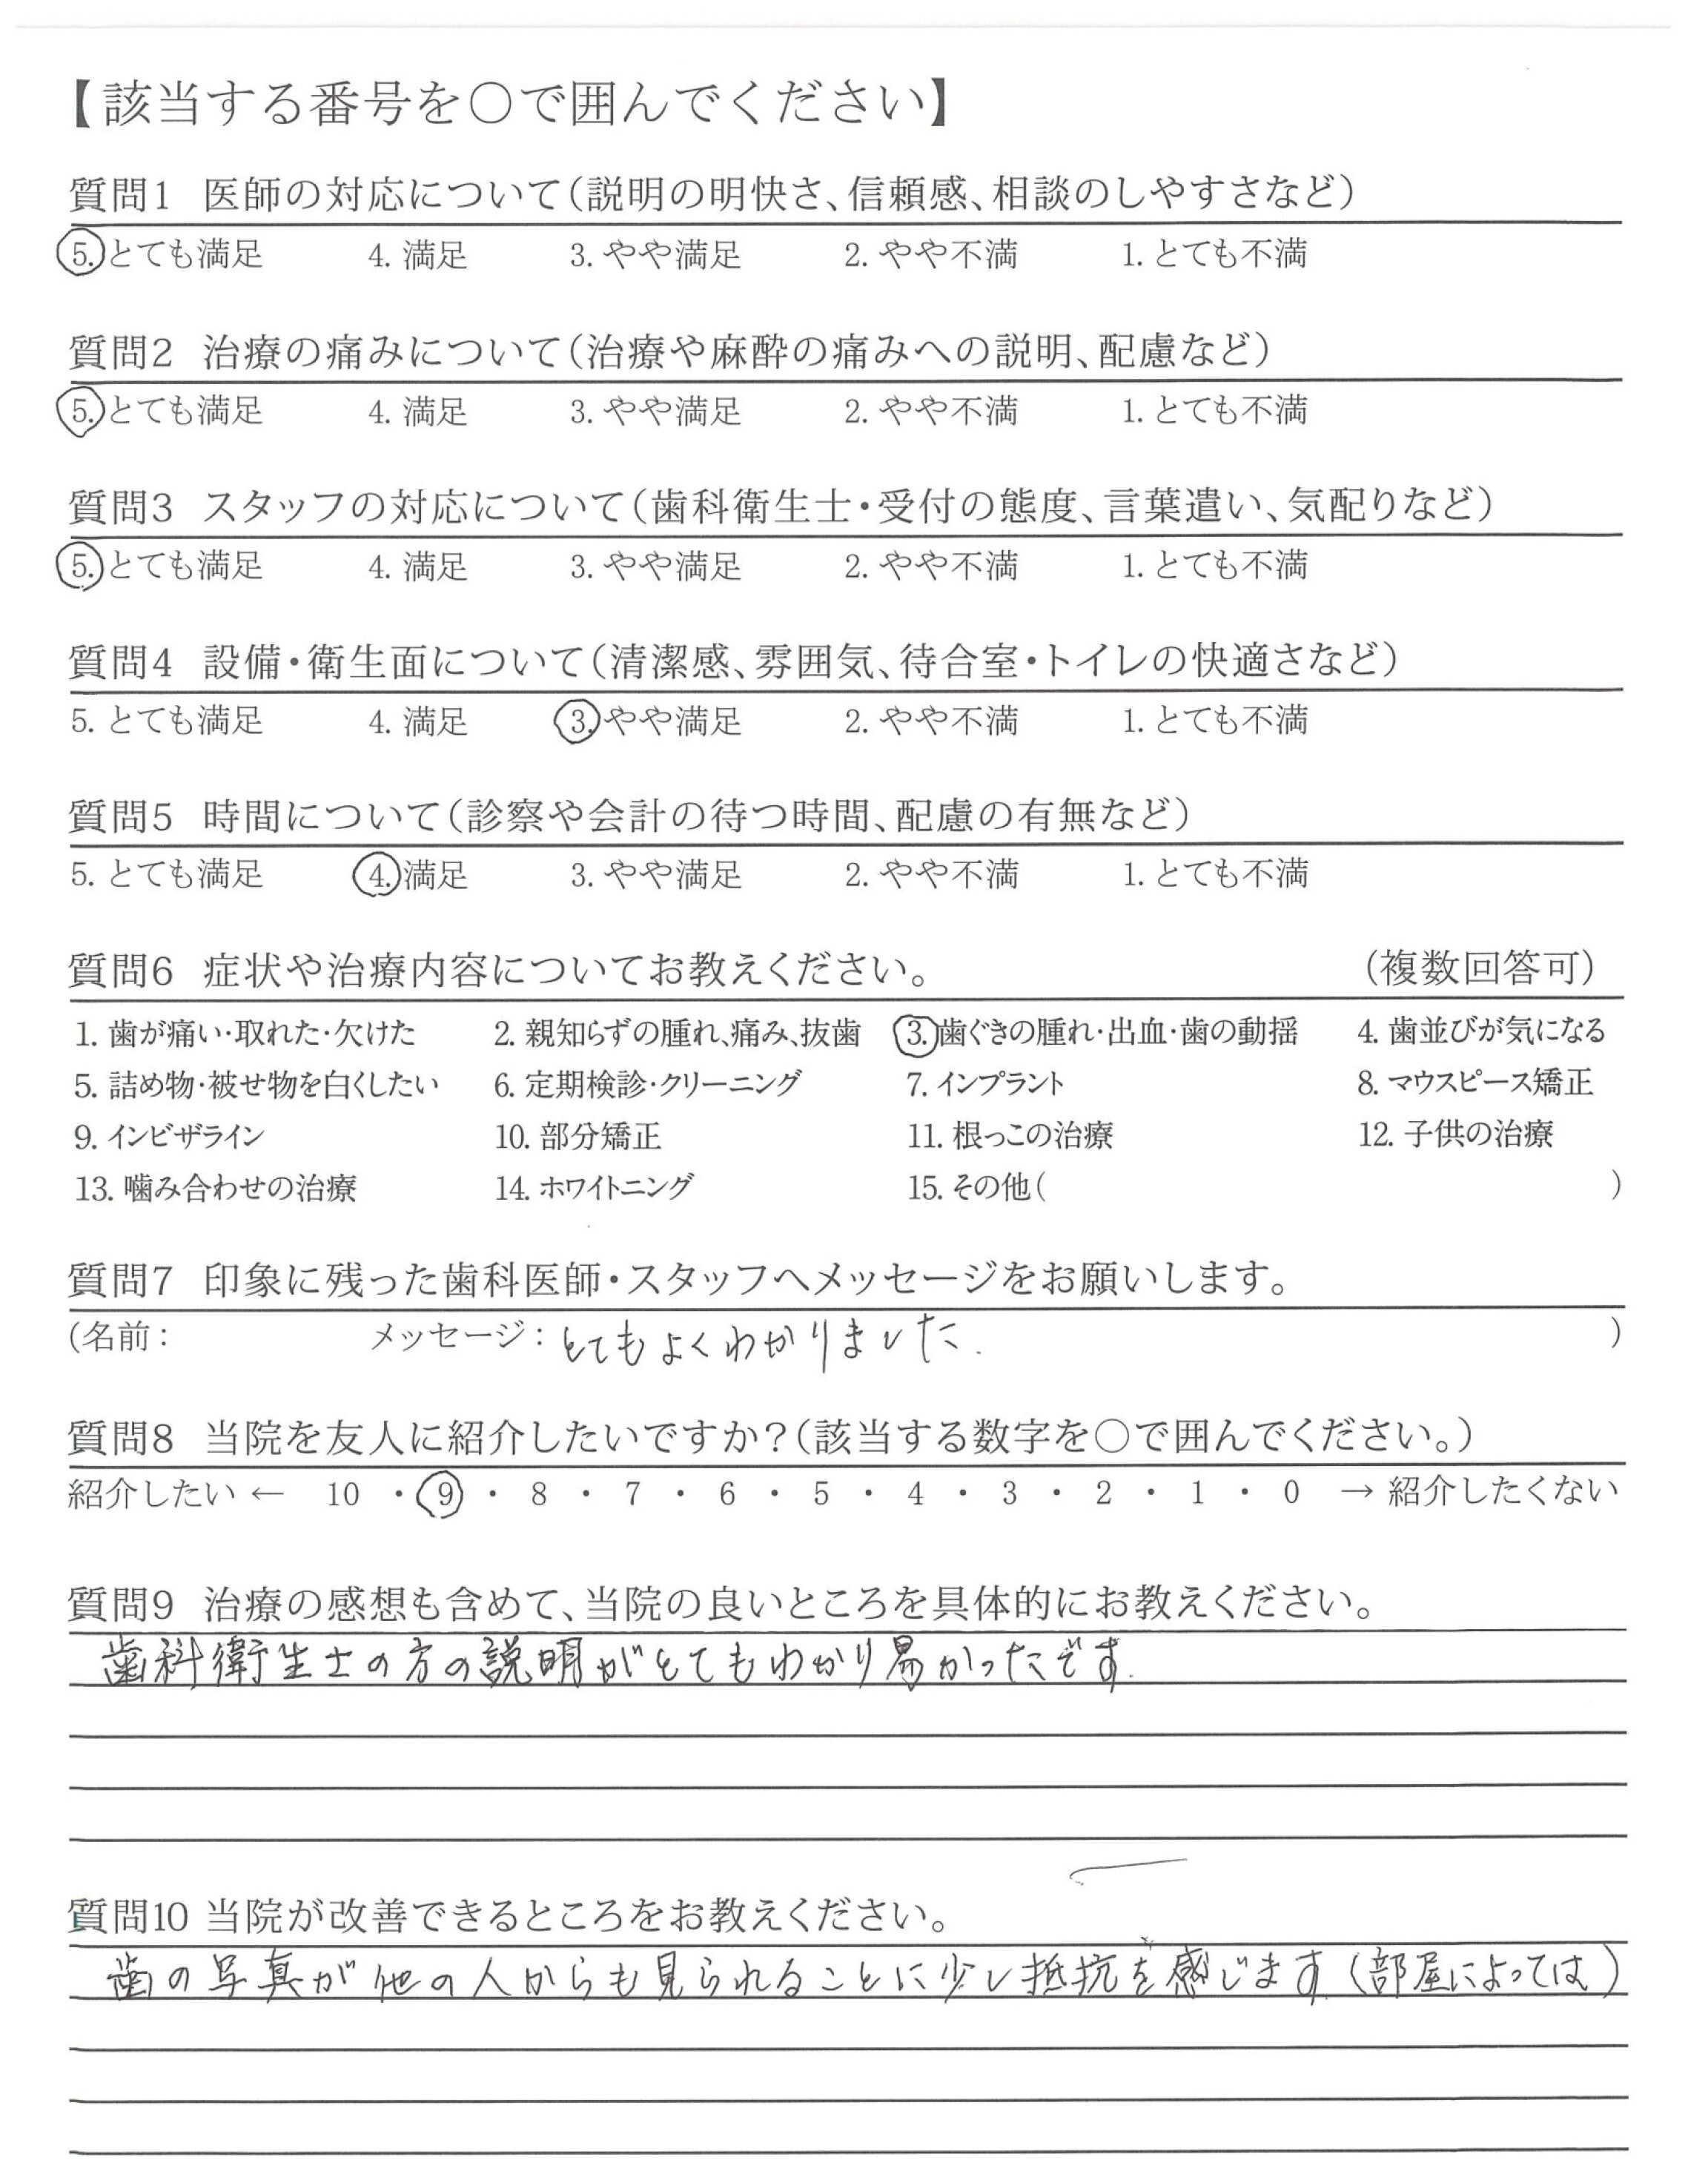 【該当する番号を○で囲んでください】
質問1 医師の対応について(説明の明快さ、信頼感、相談のしやすさなど)
5. とても満足 4. 満足 3. やや満足 2. やや不満 1. とても不満
質問2 治療の痛みについて(治療や麻酔の痛みへの説明、配慮など)
5. とても満足 4. 満足 3. やや満足 2. やや不満 1. とても不満
質問3 スタッフの対応について(歯科衛生士・受付の態度、言葉遣い、気配りなど)
5. とても満足 4. 満足 3. やや満足 2. やや不満 1. とても不満
質問4 設備・衛生面について(清潔感、雰囲気、待合室・トイレの快適さなど)
5. とても満足 4. 満足 3. やや満足 2. やや不満 1. とても不満
質問5 時間について(診察や会計の待つ時間、配慮の有無など)
5. とても満足 4. 満足 3. やや満足 2. やや不満 1. とても不満
質問6 症状や治療内容についてお教えください。 (複数回答可)
1. 歯が痛い・取れた・欠けた 2. 親知らずの腫れ、痛み、抜歯 3. 歯ぐきの腫れ・出血・歯の動揺 4. 歯並びが気になる
5. 詰め物・被せ物を白くしたい 6. 定期検診・クリーニング 7. インプラント 8. マウスピース矯正
9. インビザライン 10. 部分矯正 11. 根っこの治療 12. 子供の治療
13. 噛み合わせの治療 14. ホワイトニング 15. その他( )
質問7 印象に残った歯科医師・スタッフへメッセージをお願いします。
(名前: メッセージ: とてもよくわかりました. )
質問8 当院を友人に紹介したいですか?(該当する数字を○で囲んでください。)
紹介したい ← 10 ・ 9 ・ 8 ・ 7 ・ 6 ・ 5 ・ 4 ・ 3 ・ 2 ・ 1 ・ 0 → 紹介したくない
質問9 治療の感想も含めて、当院の良いところを具体的にお教えください。
歯科衛生士の方の説明がとてもわかり易かったです.
質問10 当院が改善できるところをお教えください。
歯の写真が他の人からも見られることに少し抵抗を感じます.(部屋によっては)